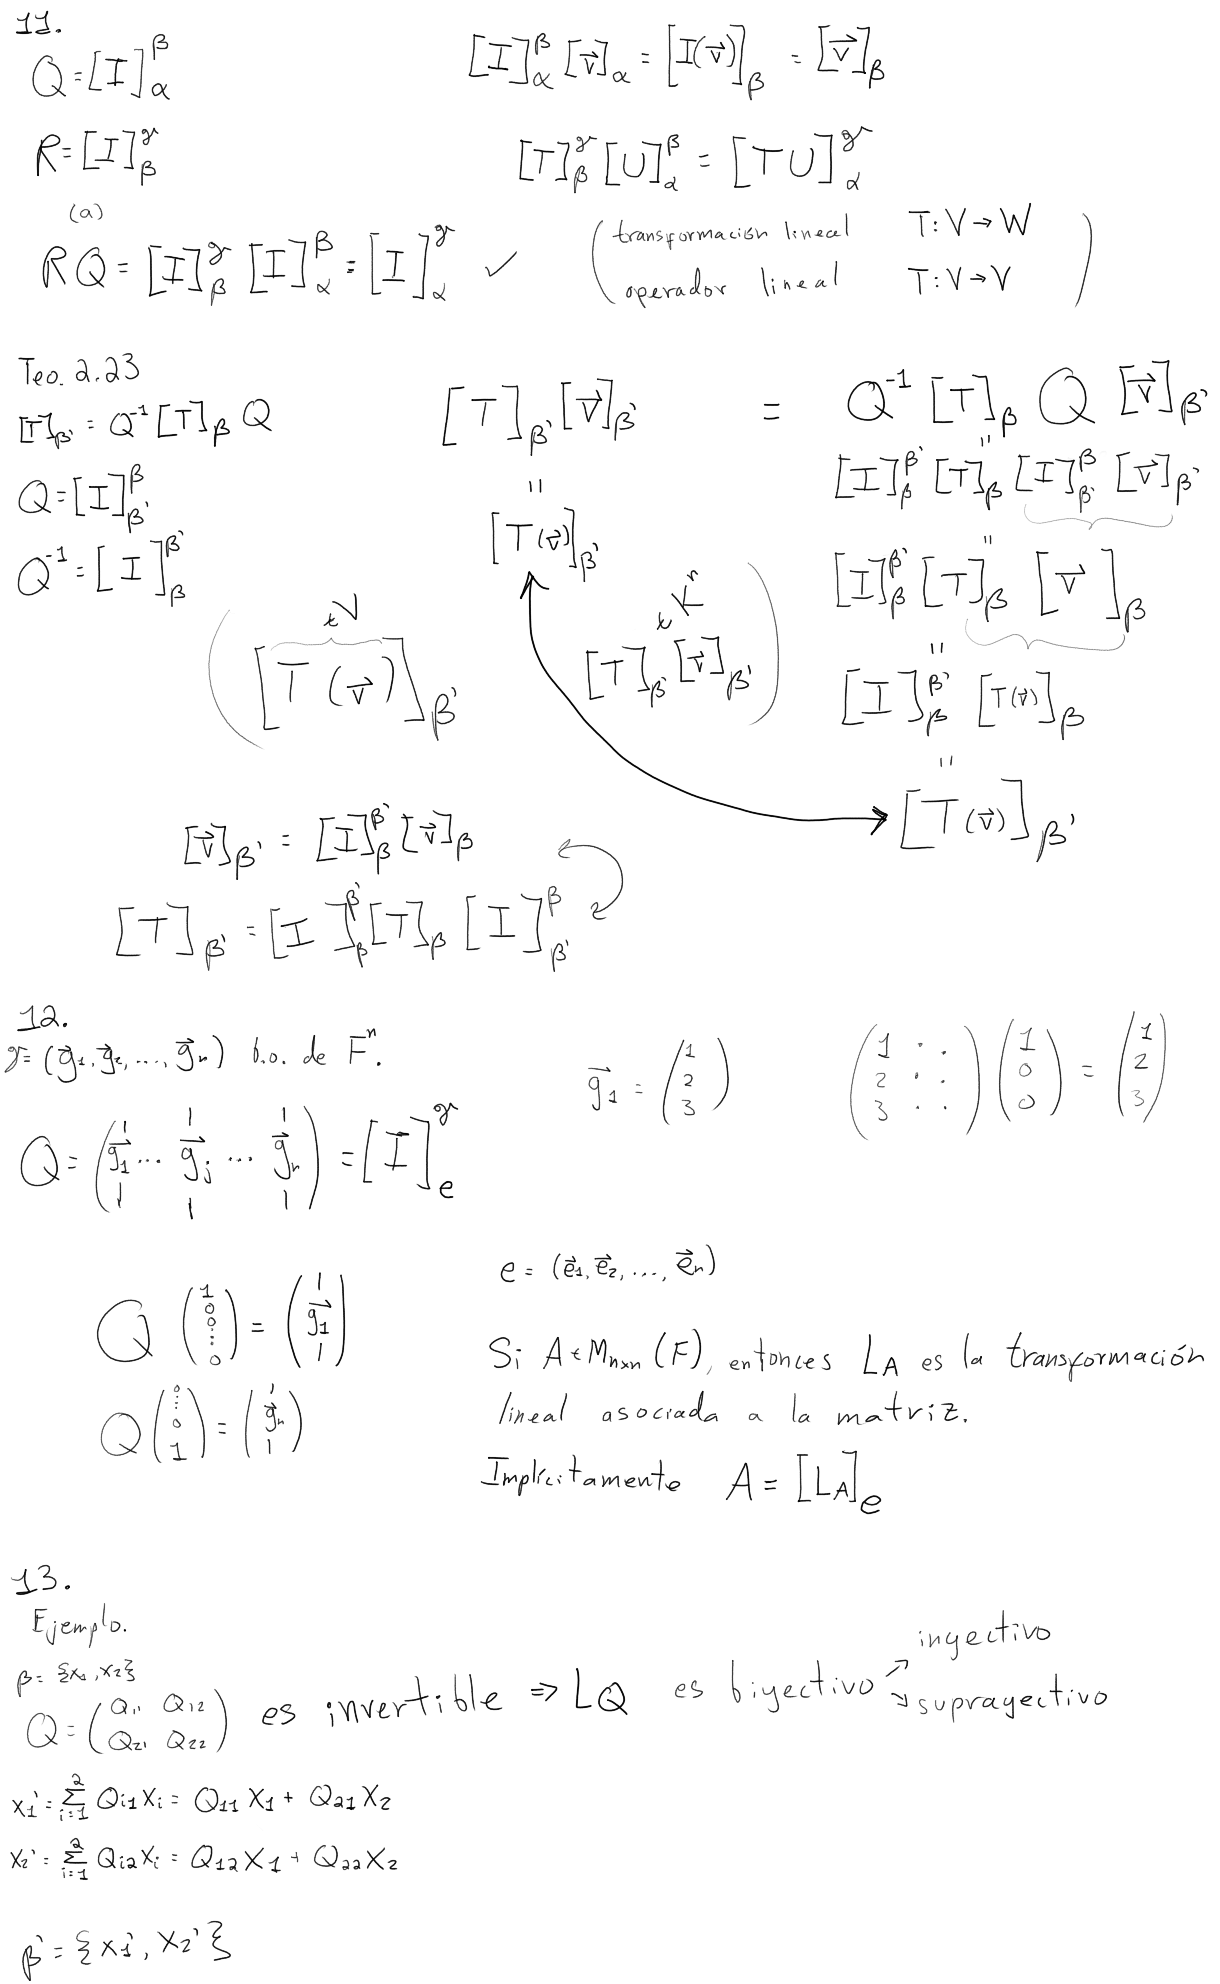 11.
Q = [I]_α^β
[I]_α^β [v⃗]_α = [I(v⃗)]_β = [v⃗]_β
R = [I]_β^γ
[T]_β^γ [U]_α^β = [TU]_α^γ
(a)
RQ = [I]_β^γ [I]_α^β = [I]_α^γ ✓
(transformación lineal T: V → W
operador lineal T: V → V)
Teo. 2.23
[T]_β' = Q^-1 [T]_β Q
Q = [I]_β'^β
Q^-1 = [I]_β^β'
[T]_β' [v⃗]_β' = Q^-1 [T]_β Q [v⃗]_β'
"
[T(v⃗)]_β'
"
[I]_β^β' [T]_β [I]_β'^β [v⃗]_β'
"
[I]_β^β' [T]_β [v⃗]_β
"
[I]_β^β' [T(v⃗)]_β
"
[T(v⃗)]_β'
∈ V
([T(v⃗)]_β'
∈ K^n
[T]_β' [v⃗]_β')
[v⃗]_β' = [I]_β^β' [v⃗]_β
[T]_β' = [I]_β^β' [T]_β [I]_β'^β
12.
γ = (g⃗1, g⃗2, ..., g⃗n) b.o. de F^n.
g⃗1 = (1 2 3)
(1 · · 2 · · 3 · ·) (1 0 0) = (1 2 3)
Q = (g⃗1 ... g⃗j ... g⃗n) = [I]_e^γ
e = (e⃗1, e⃗2, ..., e⃗n)
Q (1 0 0 ⋮ 0) = (g⃗1)
Q (0 ⋮ 0 1) = (g⃗n)
Si A ∈ Mn×n (F), entonces LA es la transformación
lineal asociada a la matriz.
Implícitamente A = [LA]_e
13.
Ejemplo.
β = {x1, x2}
Q = (Q11 Q12 Q21 Q22) es invertible ⇒ LQ es biyectivo
inyectivo
suprayectivo
x1' = Σ_{i=1}^2 Qi1 xi = Q11 x1 + Q21 x2
x2' = Σ_{i=1}^2 Qi2 xi = Q12 x1 + Q22 x2
β' = {x1', x2'}